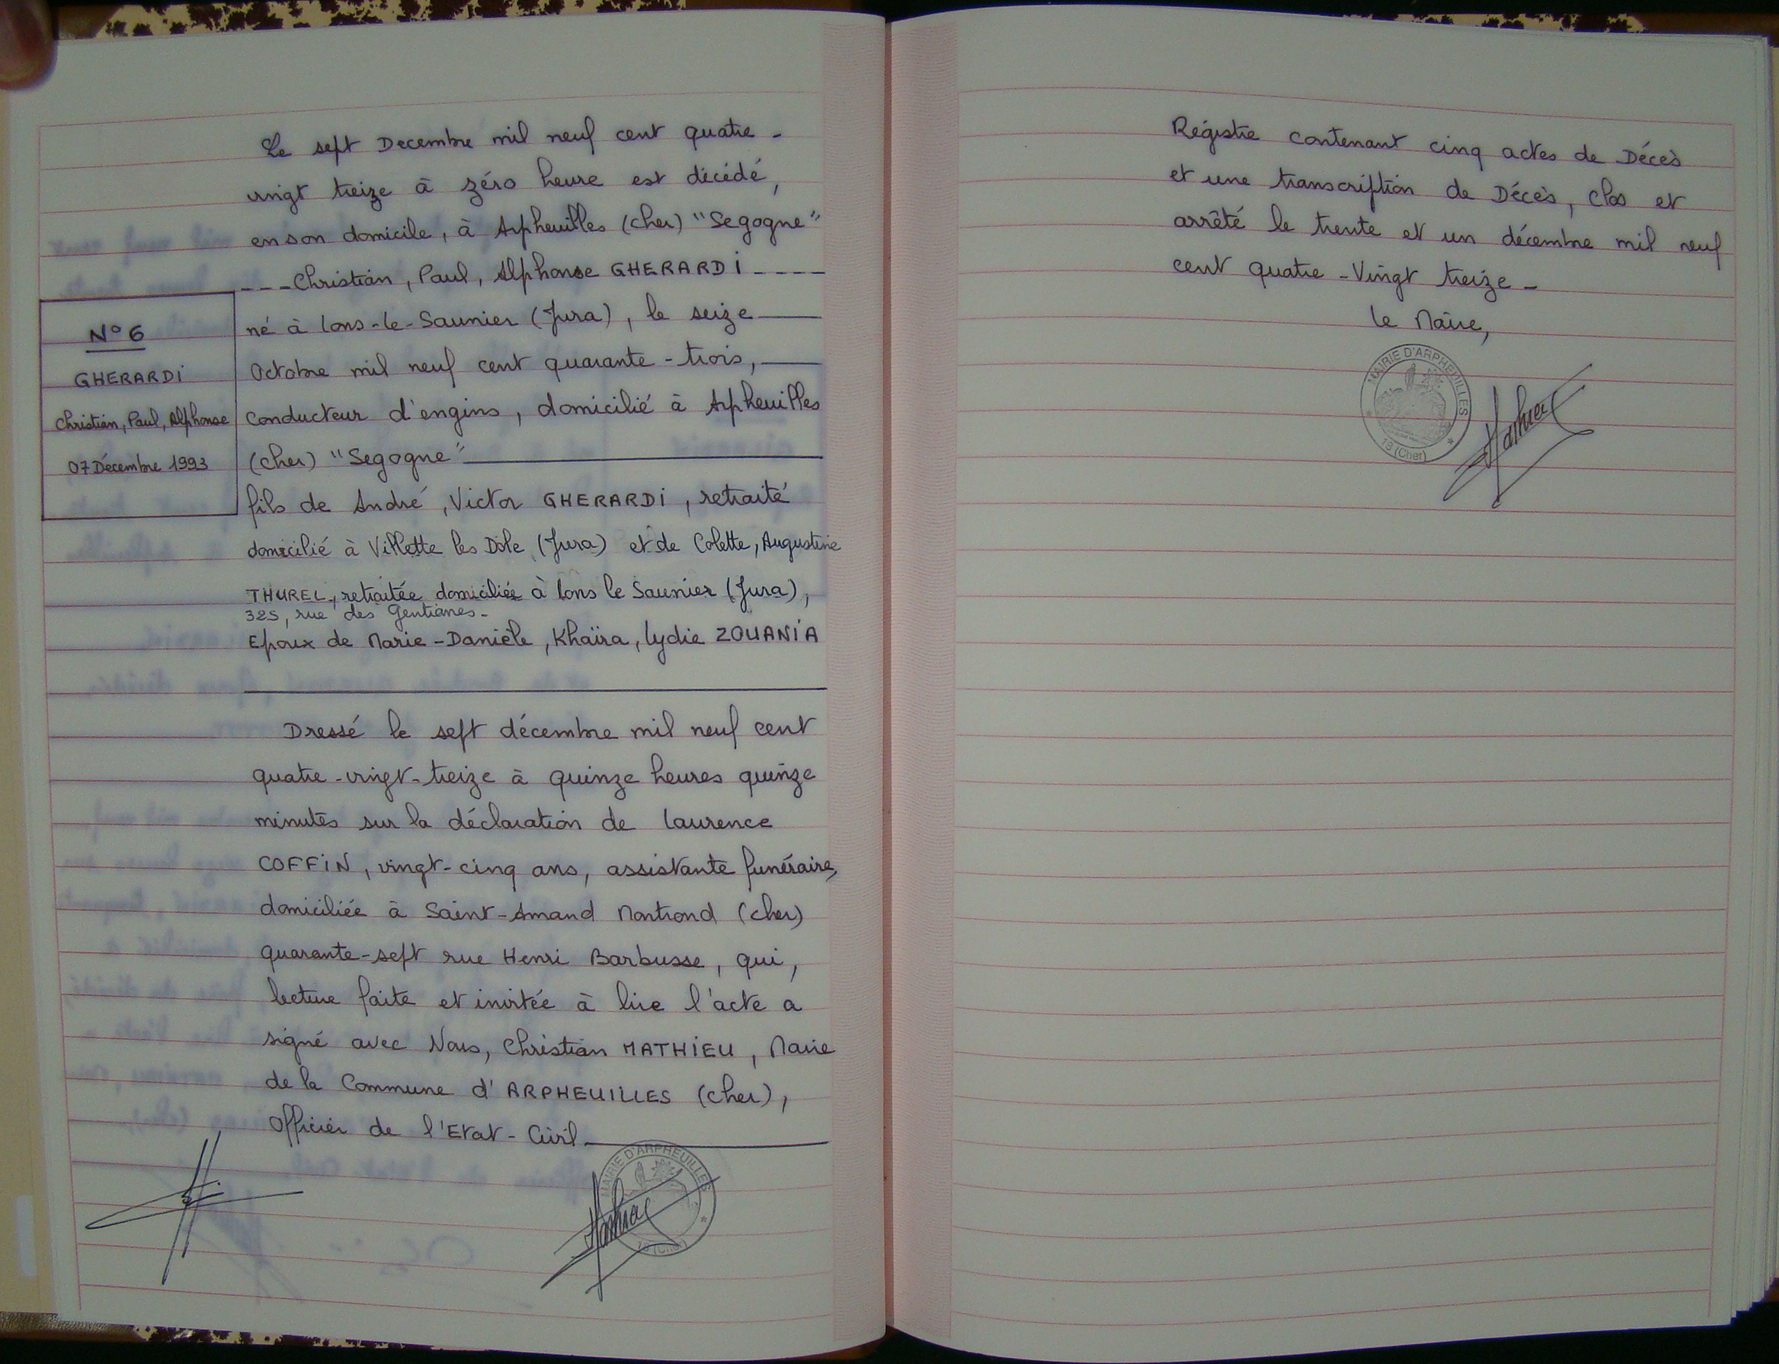 N° 6
GHERARDI
Christian, Paul, Alphonse
07 Décembre 1993
Le sept Decembre mil neuf cent quatre-
vingt treize à zéro heure est décédé,
en son domicile, à Arpheuilles (Cher) "Segogne"
---Christian, Paul, Alphonse GHERARDI----
né à Lons-le-Saunier (Jura), le seize
Octobre mil neuf cent quarante-trois,
conducteur d'engins, domicilié à Arpheuilles
(Cher) "Segogne"
fils de André, Victor GHERARDI, retraité
domicilié à Villette les Dole (Jura) et de Colette, Augustine
THUREL, retraitée domiciliée à Lons le Saunier (Jura),
325, rue des Gentianes-
Epoux de Marie-Danièle, Khaïra, Lydie ZOUANIA
Dressé le sept décembre mil neuf cent
quatre-vingt-treize à quinze heures quinze
minutes sur la déclaration de Laurence
COFFIN, vingt-cinq ans, assistante funéraire,
domiciliée à Saint-Amand Montrond (Cher)
quarante-sept rue Henri Barbusse, qui,
lecture faite et invitée à lire l'acte a
signé avec Nous, Christian MATHIEU, Maire
de la Commune d'ARPHEUILLES (Cher),
Officier de l'Etat-Civil
MAIRIE D'ARPHEUILLES
18 (Cher)
Registre contenant cinq actes de Décès
et une transcription de Décès, clos et
arrêté le trente et un décembre mil neuf
cent quatre-Vingt treize-
Le Maire,
MAIRIE D'ARPHEUILLES
18 (Cher)